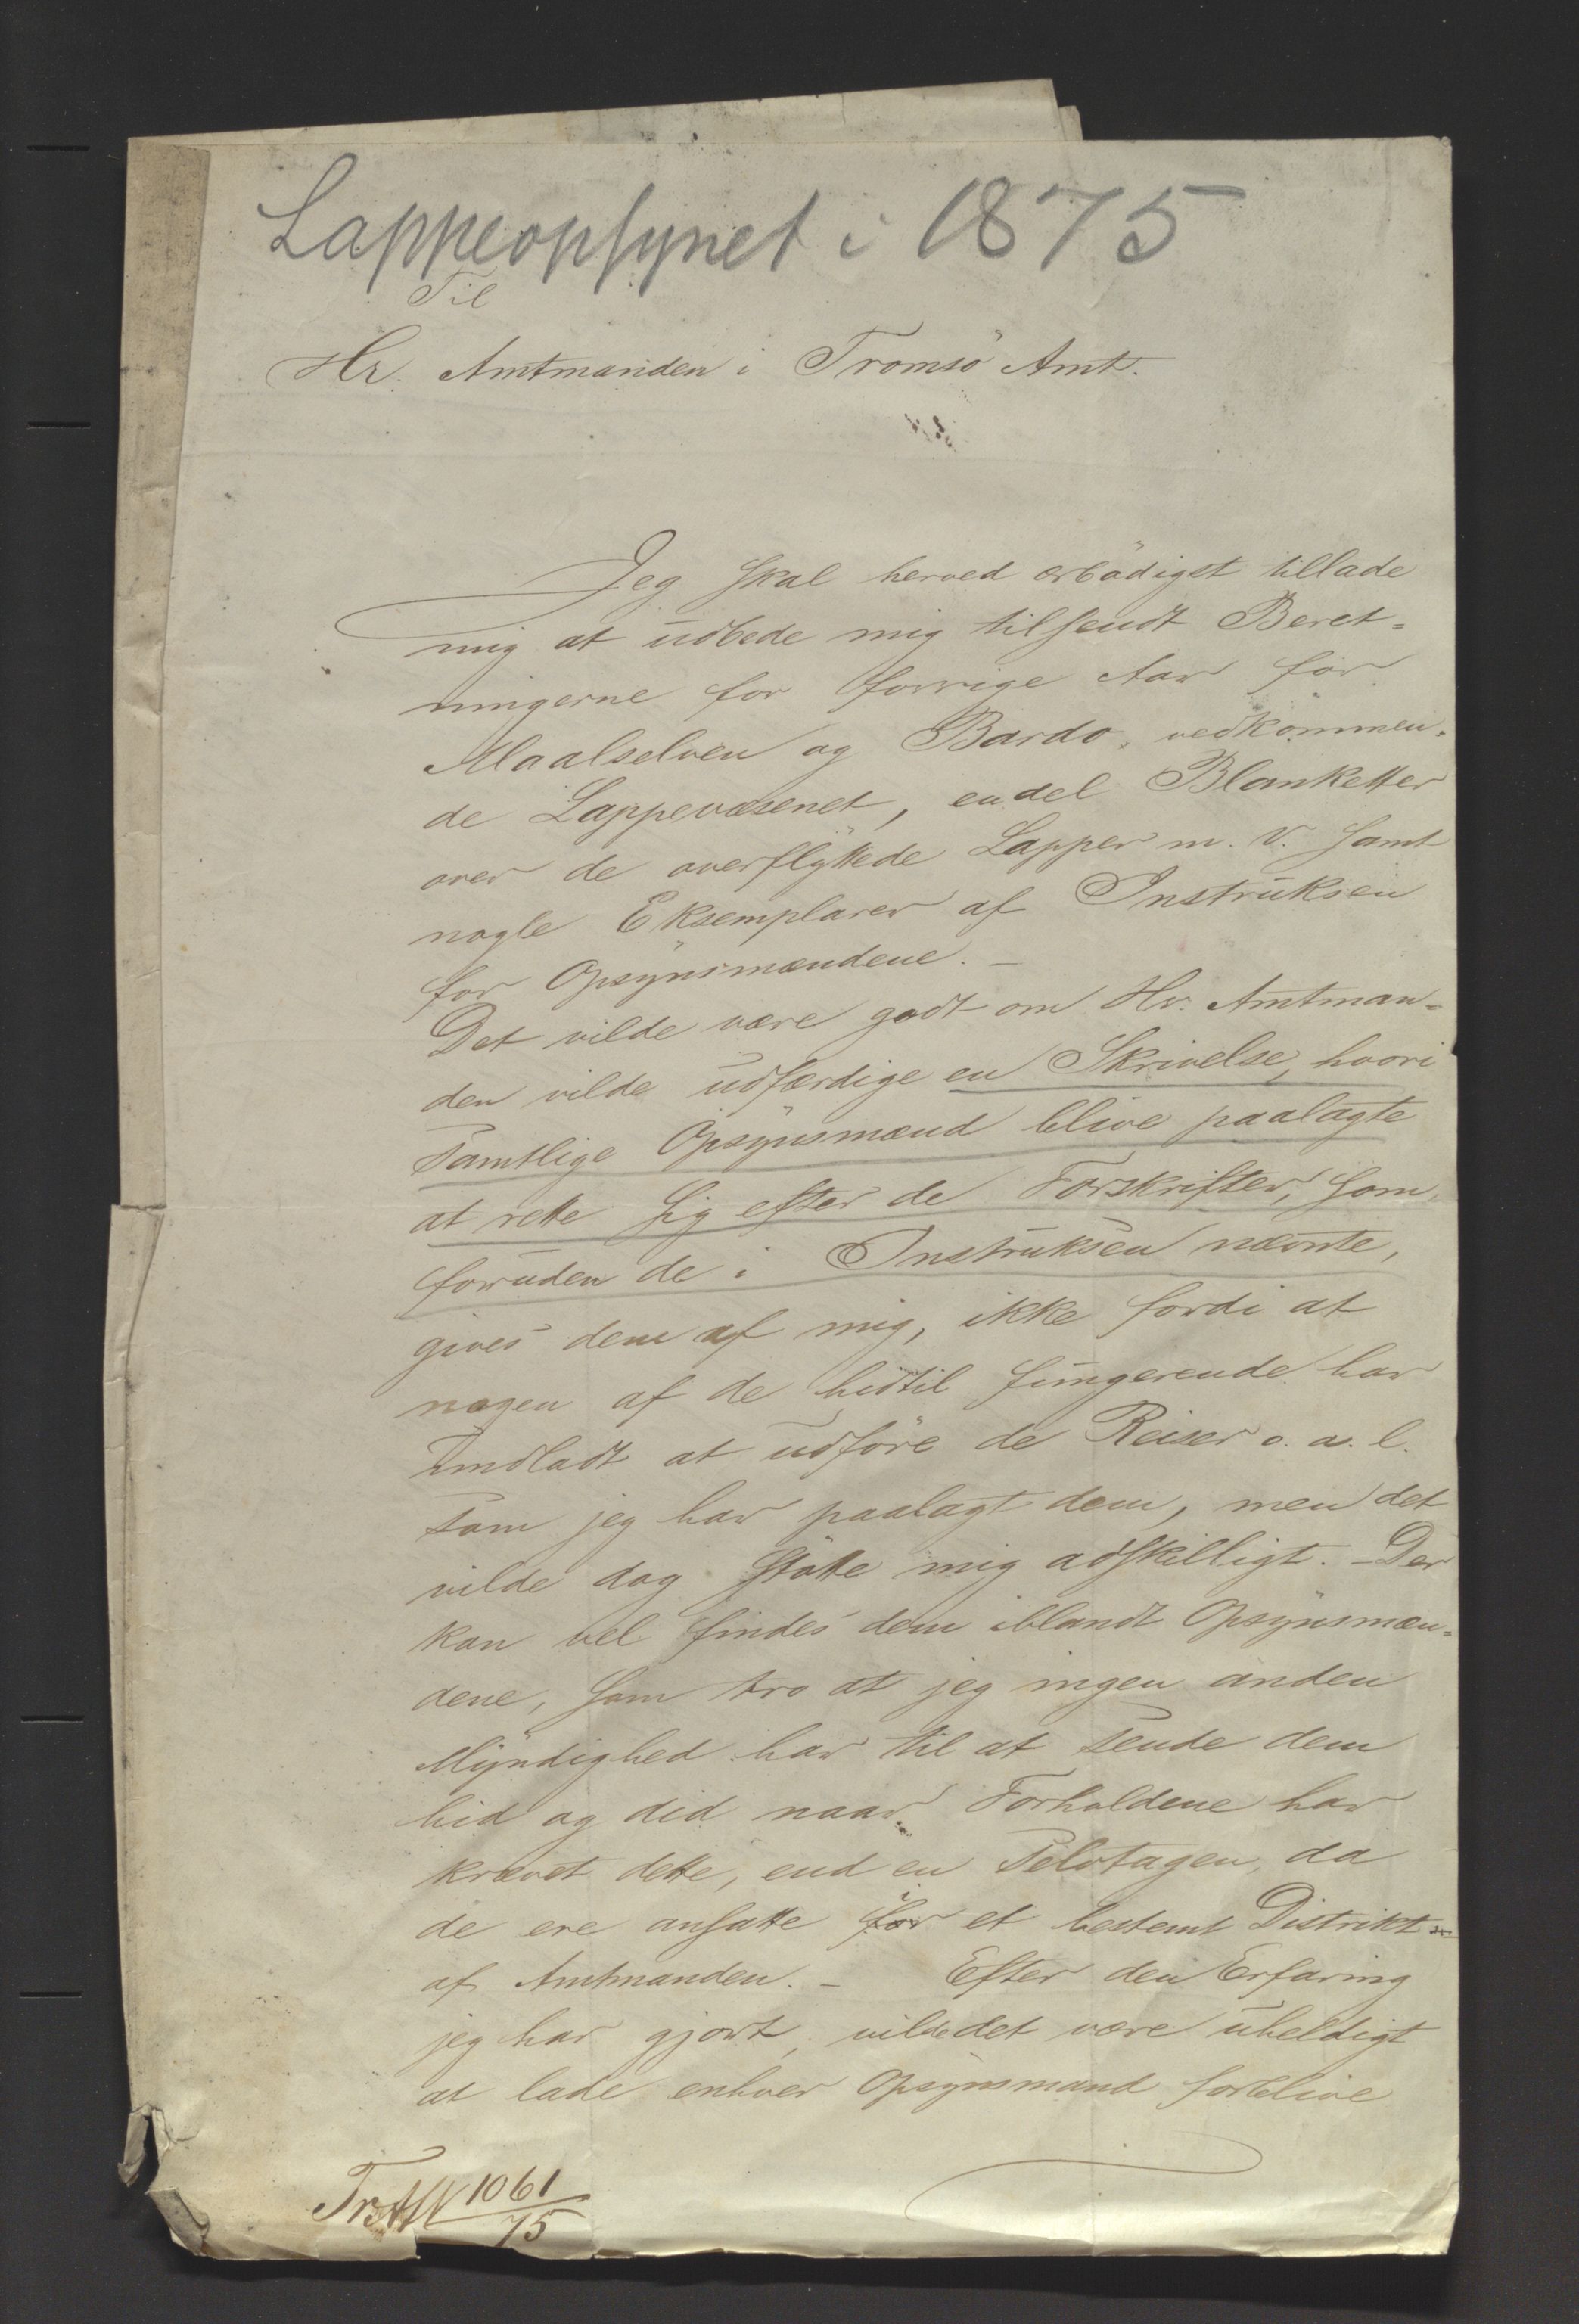 Lappeopsynet i 1875
Til
Hr. Amtmanden i Tromsö Amt.
Jeg skal herved ærbödigst tillade
mig at udbede mig tilsendt Beret=
ningerne for forrige Aar for
Maalselven og Bardo, vedkommen=
de Lappevæsenet, endel Blanketter
over de overflyttede Lapper m. V. samt
nogle Eksemplarer af Instruksen
for Opsynsmændene. –
Det vilde være godt om Hr. Amtman=
den vilde udfærdige en Skrivelse, hvori
samtlige Opsynsmænd blive paalagte
at rette sig efter de Forskrifter, som,
foruden de i Instruksen nævnte,
gives dem af mig, ikke fordi at
nogen af de hidtil fungerende har
undladt at udföre de Reiser o. a. l.
som jeg har paalagt dem, men det
vilde dog stötte mig adskilligt. – Der
kan vel findes dem iblandt Opsynsmæn=
dene, som tro at jeg ingen anden
Myndighed har til at sende dem
hid og did naar Forholdene har
krævet dette, end en Selvtagen, da
de ere ansatte for et bestemt Distrikt
af Amtmanden. – Efter den Erfaring
jeg har gjort, vilde det være uheldigt
at lade enhver Opsynsmand forblive
1061
75